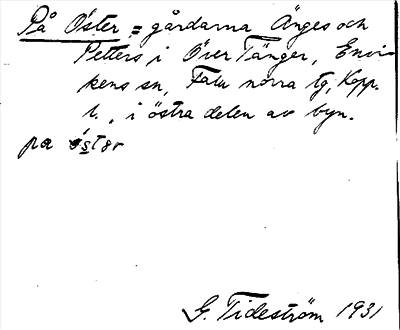 På Öster = gårdarna Änges och
Petters i Över Tänger, Envi-
kens sn, Falu norra tg, Kopp.
l., i östra delen av byn.
pa
G. Tideström 1931